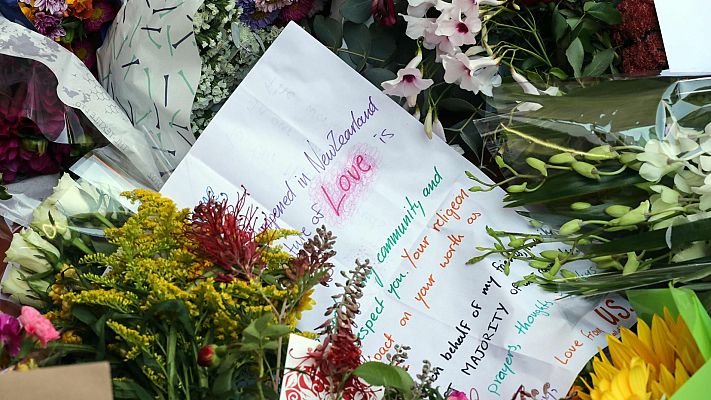 happened in New Zearland
tive of Love is
y community and
spect you. Your religion
pact on your work as
n behalf of my
T MAJORITY of
prayers, thoughts
Love from US